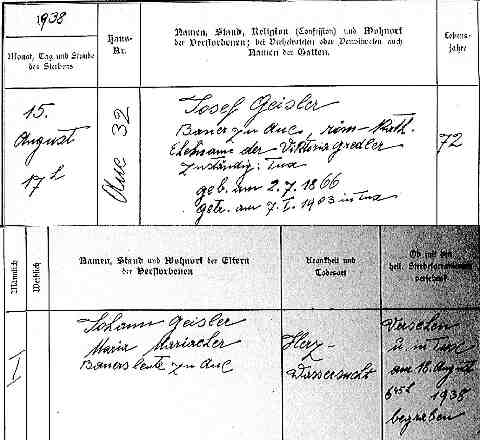 1938
Monat, Tag und Stunde
des Sterbens
Haus-
Nr.
Namen, Stand, Religion (Confession) und Wohnort
der Verstorbenen; bei Verheirateten oder Verwitweten auch
Namen der Gatten.
Lebens-
jahre
15.
August
17h
Aue 32
Josef Geisler
Bauer zu Aue, röm-Kath.
Ehemann der Viktoria Gredler
zuständig: Tux
geb. am 2. 7. 1866
getr. am 7. I. 1903 in Tux
72
Männlich
Weiblich
Namen, Stand und Wohnort der Eltern
der Verstorbenen
Krankheit und
Todesart
Ob mit den
heil. Sterbesakramenten
versehen?
I
Johann Geisler
Maria Mariacher
Bauersleute zu Aue
Herz-
Wassersucht
Versehen
u. in Tux
am 18. August
1938
begraben